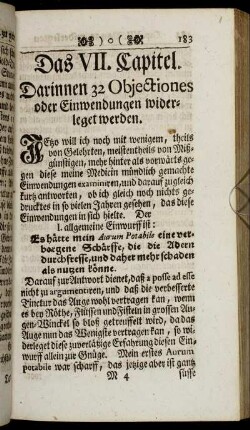 ) o ( 183
Das VII. Capitel.
Darinnen 32 Objectiones
oder Einwendungen wider-
leget werden.
JEtzo will ich noch mit wenigem, theils
von Gelehrten, meistentheils von Miß-
günstigen, mehr hinter als vorwärts ge-
gen diese meine Medicin mündlich gemachte
Einwendungen examiniren, und darauf zugleich
kurtz antworten, ob ich gleich noch nichts ge-
drucktes in so vielen Jahren gesehen, das diese
Einwendungen in sich hielte. Der
I. allgemeine Einwurff ist:
Es hätte mein Aurum Potabile eine ver-
borgene Schärffe, die die Adern
durchfresse, und daher mehr schaden
als nutzen könne.
Darauf zur Antwort dienet, daß a posse ad esse
nicht zu argumentiren, und daß die verbesserte
Tinctur das Auge wohl vertragen kan, wenn
es bey Röthe, Flüssen und Fisteln in grossen Au-
gen-Winckel so bloß getreuffelt wird, da das
Auge nun das Wenigste vertragen kan, so wi-
derleget diese zuverläßige Erfahrung diesen Ein-
wurff allein zur Gnüge. Mein erstes Aurum
potabile war scharff, das jetzige aber ist gantz
M 4 süsse